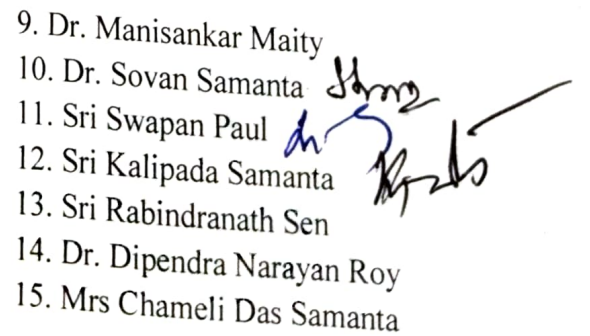 9. Dr. Manisankar Maity
10. Dr. Sovan Samanta
11. Sri Swapan Paul
12. Sri Kalipada Samanta
13. Sri Rabindranath Sen
14. Dr. Dipendra Narayan Roy
15. Mrs Chameli Das Samanta